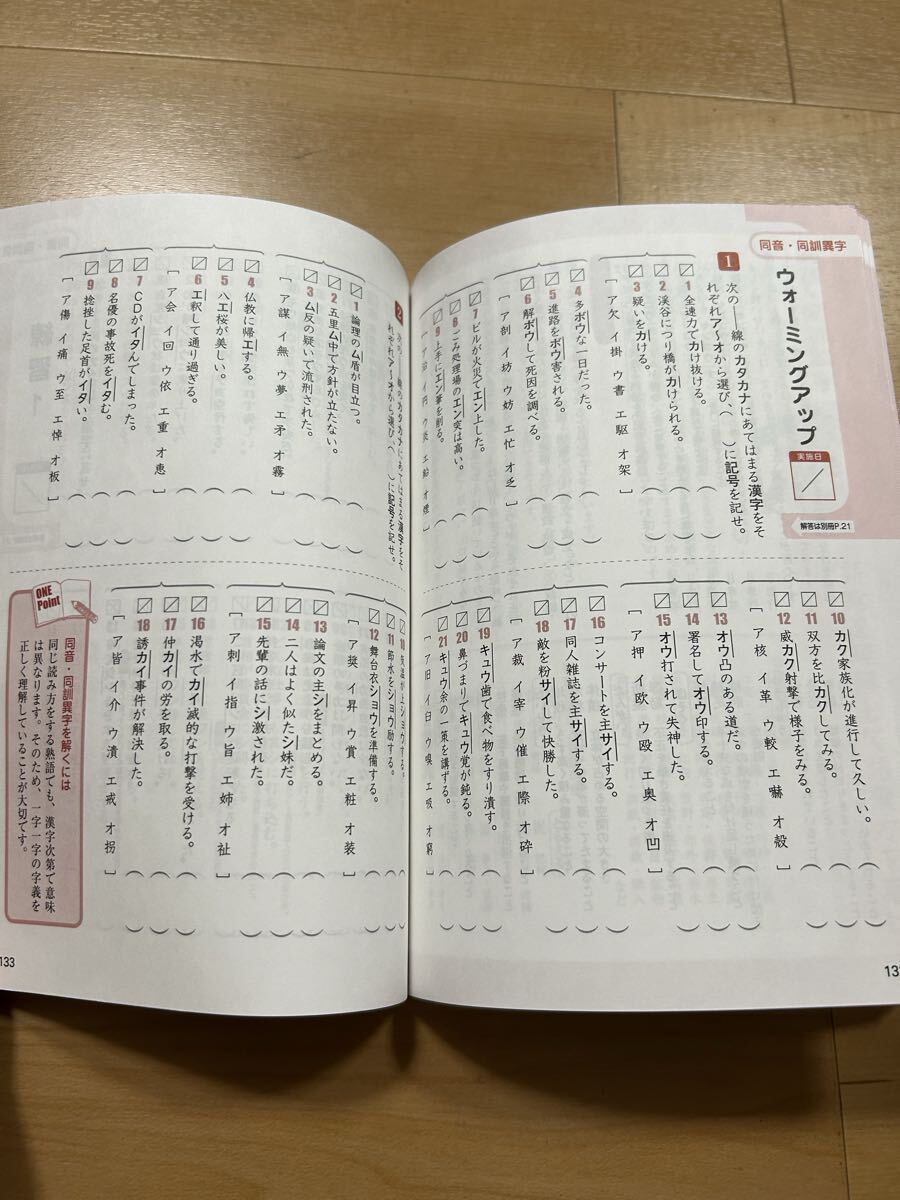 同音・同訓異字
ウォーミングアップ
実施日
解答は別冊P.21
1 次の――線のカタカナにあてはまる漢字をそ
れぞれア〜オから選び、( )に記号を記せ。
1 全速力でカけ抜ける。( )
2 渓谷につり橋がカけられる。( )
3 疑いをカける。( )
[ア欠 イ掛 ウ書 エ駆 オ架]
4 多ボウな一日だった。( )
5 進路をボウ害される。( )
6 解ボウして死因を調べる。( )
[ア剖 イ坊 ウ妨 エ忙 オ乏]
7 ビルが火災でエン上した。( )
8 ごみ処理場のエン突は高い。( )
9 上手にエン筆を削る。( )
イ円 ウ炎 エ鉛 オ煙]
10 カク家族化が進行して久しい。( )
11 双方を比カクしてみる。( )
12 威カク射撃で様子をみる。( )
[ア核 イ革 ウ較 エ嚇 オ殻]
13 オウ凸のある道だ。( )
14 署名してオウ印する。( )
15 オウ打されて失神した。( )
[ア押 イ欧 ウ殴 エ奥 オ凹]
16 コンサートを主サイする。( )
17 同人雑誌を主サイする。( )
18 敵を粉サイして快勝した。( )
[ア裁 イ宰 ウ催 エ際 オ砕]
19 キュウ歯で食べ物をすり潰す。( )
20 鼻づまりでキュウ覚が鈍る。( )
21 キュウ余の一策を講ずる。( )
[ア旧 イ臼 ウ嗅 エ吸 オ窮]
2 次の――線のカタカナにあてはまる漢字をそ
れぞれア〜オから選び、( )に記号を記せ。
1 論理のム盾が目立つ。( )
2 五里ム中で方針が立たない。( )
3 ム反の疑いで流刑された。( )
[ア謀 イ無 ウ夢 エ矛 オ霧]
4 仏教に帰エする。( )
5 八エ桜が美しい。( )
6 エ釈して通り過ぎる。( )
[ア会 イ回 ウ依 エ重 オ恵]
7 CDがイタんでしまった。( )
8 名優の事故死をイタむ。( )
9 捻挫した足首がイタい。( )
[ア傷 イ痛 ウ至 エ悼 オ板]
10 気温がショウする。( )
11 節水をショウ励する。( )
12 舞台衣ショウを準備する。( )
[ア奨 イ昇 ウ賞 エ粧 オ装]
13 論文の主シをまとめる。( )
14 二人はよく似たシ妹だ。( )
15 先輩の話にシ激された。( )
[ア刺 イ指 ウ旨 エ姉 オ祉]
16 渇水でカイ滅的な打撃を受ける。( )
17 仲カイの労を取る。( )
18 誘カイ事件が解決した。( )
[ア皆 イ介 ウ潰 エ戒 オ拐]
ONE Point
同音・同訓異字を解くには
同じ読み方をする熟語でも、漢字次第で意味
は異なります。そのため、一字一字の字義を
正しく理解していることが大切です。
133